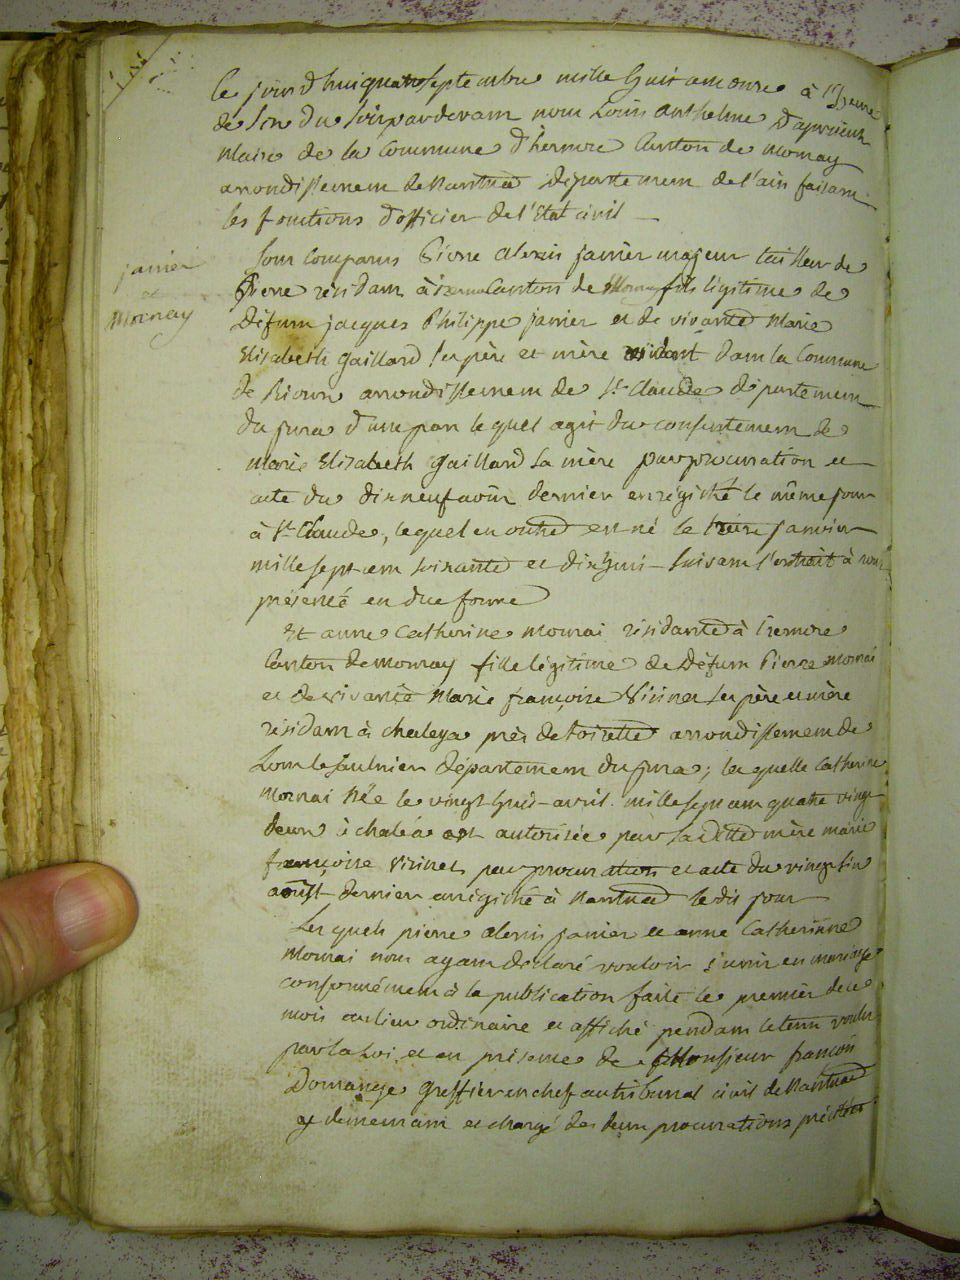 Ce jourd'hui quatre septembre mille huit cent onze à l'heure
de six du soir pardevant nous Louis Anthelme Dapvrieux
Maire de la Commune d'hernore Canton de Mornay
arrondissement de Nantua département de l'ain faisant
les fonctions d'officier de l'Etat civil
janier
et
Mornay
Sont Comparus Pierre alexis janier majeur tailleur de
Pierre résidant à izernore Canton de Mornay fils légitime de
Défunt jacques Philippe janier et de vivante Marie
Elisabeth gaillard ses père et mère résidant dans la Commune
de arrondissement de St Claude département
du jura d'une part lequel agit du consentement de
Marie Elizabeth gaillard sa mère par procuration et
acte du dix neuf août dernier enrégistré le même jour
à St Claude, lequel en outre est né le treize janvier
mille sept cent soixante et dix huit suivant l'extrait à nous
présenté en due forme
Et anne Catherine Mornai résidante à izernore
Canton de Mornay fille légitime de Défunt Pierre Mornai
et de vivante Marie françoise ses père et mère
résidant à chaleya près de toirette arrondissement de
Lons le Saulnier département du jura; laquelle Catherine
Mornai Née le vingt huit avril mille sept cent quatre vingt
deux à chaléa est autorisée par sa ditte mère marie
françoise par procuration et acte du vingt six
août dernier enrégistré à Nantua le dit jour
Lesquels pierre alexis janier et anne Catherinne
Mornai nous ayant déclaré vouloir s'unir en mariage
conformément à la publication faite le premier de ce
mois au lieu ordinaire et affiché pendant le tems voulu
par la Loi, et en présence de Monsieur françois
Domange greffier en chef au tribunal civil de Nantua
y demeurant et chargé des deux procurations précitées